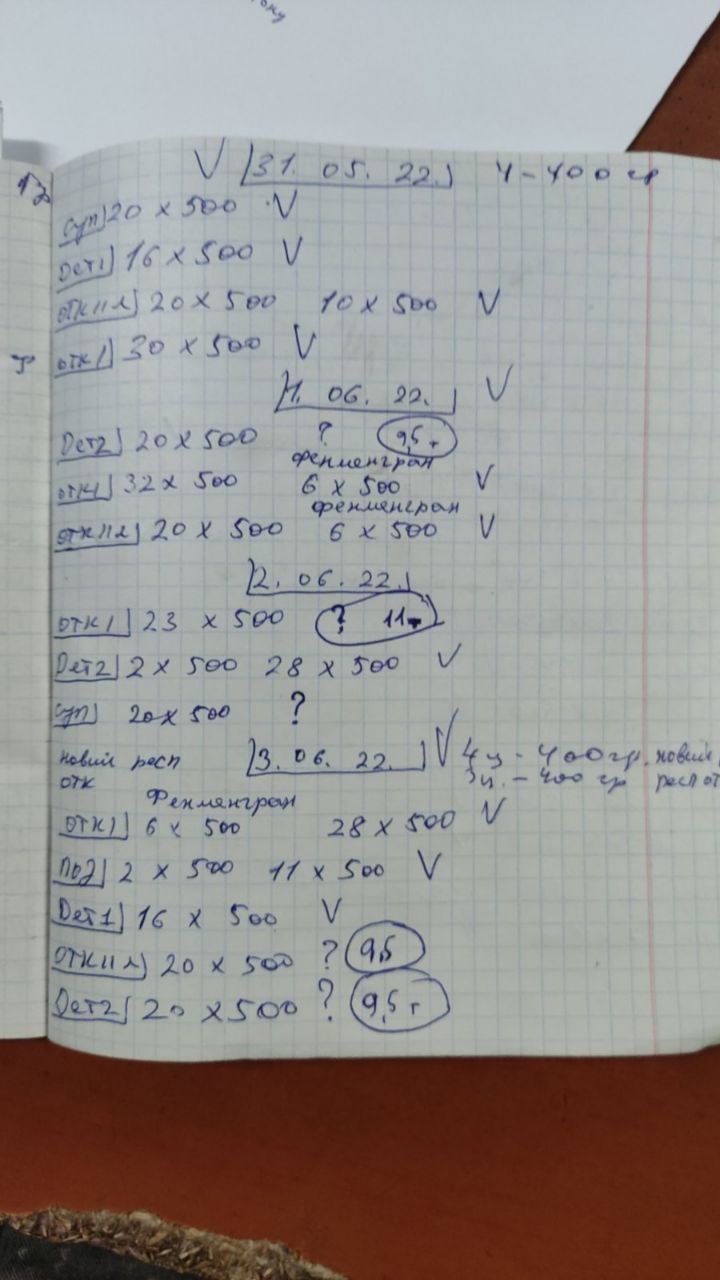 V 31. 05. 22. 4-400 гр
суп 20 x 500 V
Dет1 16 x 500 V
отк11л 20 x 500 10 x 500 V
отк1 30 x 500 V
1. 06. 22. V
Dет2 20 x 500 ? 9,5 т
фенменгран
отк1 32 x 500 6 x 500 V
фенменгран
отк11л 20 x 500 6 x 500 V
2. 06. 22.
отк1 23 x 500 ? 11т
Dет2 2 x 500 28 x 500 V
суп 20 x 500 ?
новий респ 3. 06. 22. V 4ц - 400 гр. новий
отк 3ц. - 400 гр респ от
Фенменгран
отк1 6 x 500 28 x 500 V
2 x 500 11 x 500 V
Dет1 16 x 500 V
отк11л 20 x 500 ? 9,5
Dет2 20 x 500 ? 9,5 т